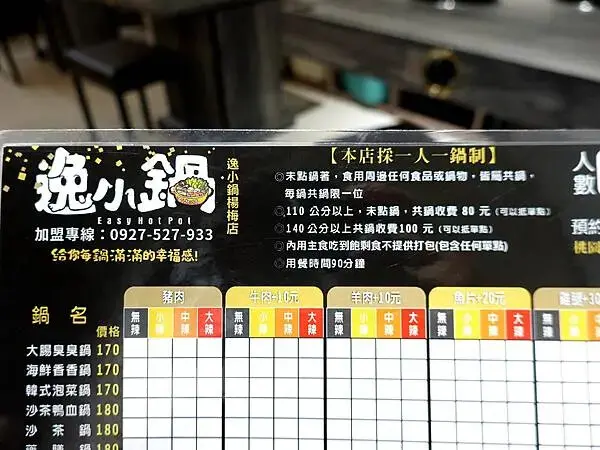 逸小鍋
EasyHotPot
逸小鍋楊梅店
加盟專線：0927-527-933
給你每鍋滿滿的幸福感!
【本店採一人一鍋制】
◎未點鍋著，食用周邊任何食品或鍋物，皆屬共鍋，
每鍋共鍋限一位
◎110 公分以上，未點鍋，共鍋收費 80 元（可以抵單點）
◎140 公分以上共鍋收費100 元（可以抵單點）
◎內用主食吃到飽剩食不提供打包(包含任何單點)
◎用餐時間90分鐘
人
數
預約
桃園
鍋名 價格
豬肉 牛肉+10元 羊肉+10元 魚片+20元 雞腿+30
無辣 小辣 中辣 大辣 無辣 小辣 中辣 大辣 無辣 小辣 中辣 大辣 無辣 小辣 中辣 大辣 無辣 小辣
大腸臭臭鍋 170
海鮮香香鍋 170
韓式泡菜鍋 170
沙茶鴨血鍋 180
沙茶鍋 180
藥膳鍋 180